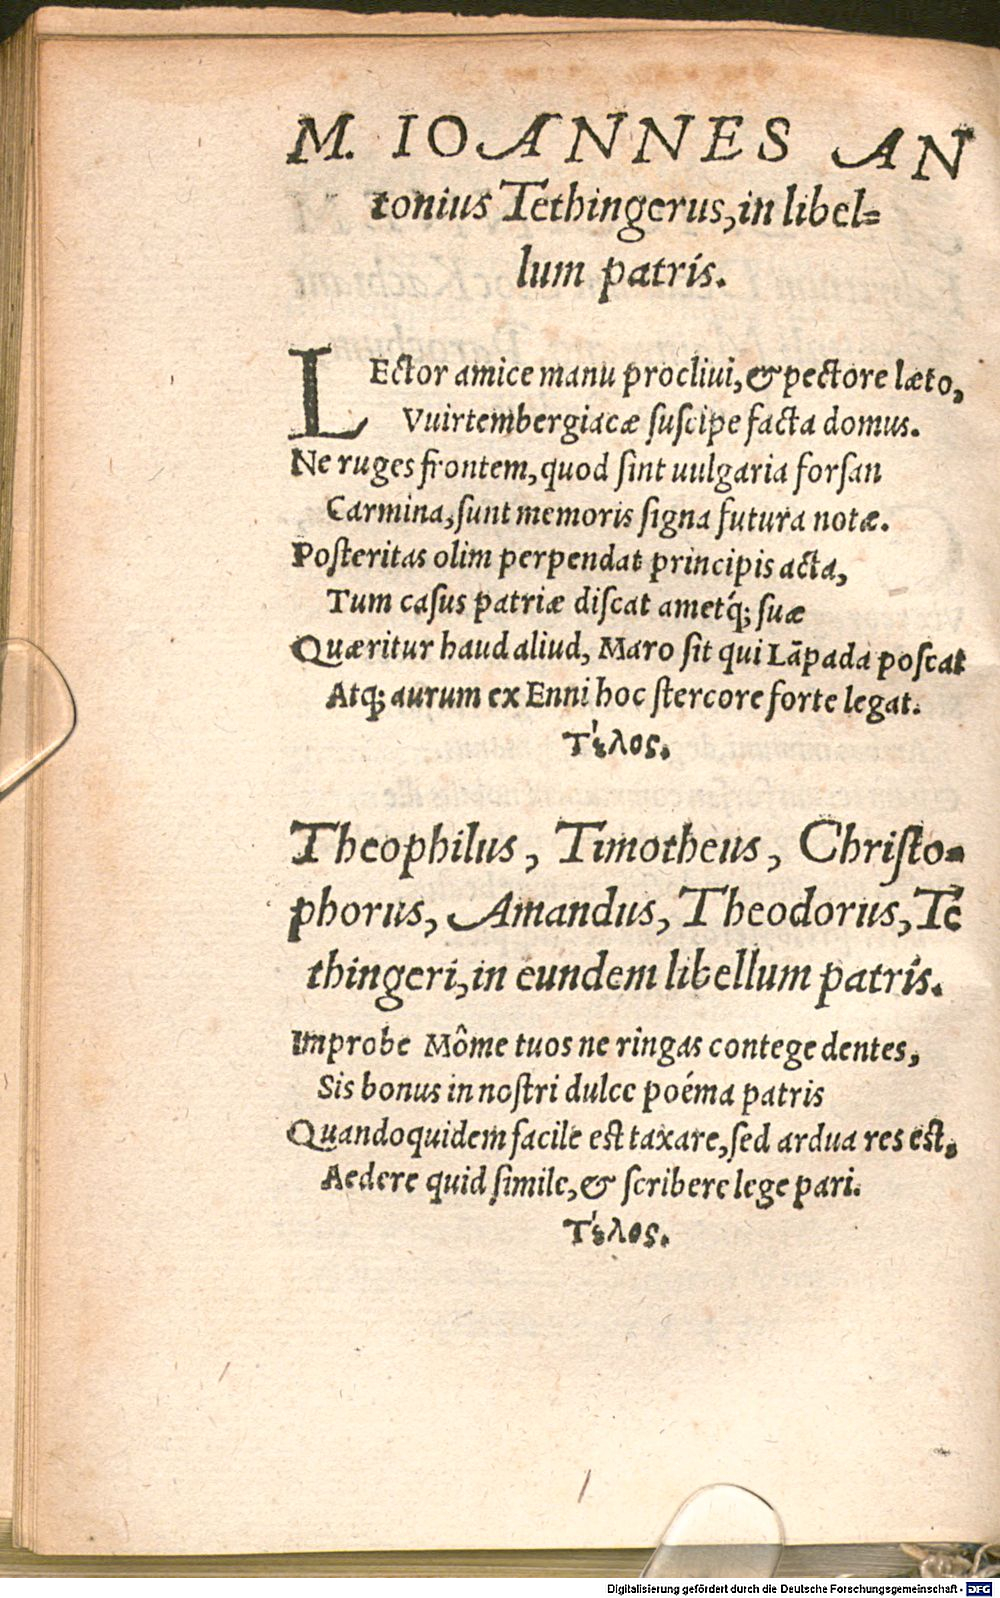 M. IOANNES AN
tonius Tethingerus, in libel=
lum patris.
LEctor amice manu procliui, & pectore læto,
Vuirtembergiacæ ſuſcipe facta domus.
Ne ruges frontem, quod ſint uulgaria forſan
Carmina, ſunt memoris ſigna futura notæ.
Poſteritas olim perpendat principis acta,
Tum caſus patriæ diſcat ametq́; ſuæ
Quæritur haud aliud, Maro ſit qui Lāpada poſcat
Atq; aurum ex Enni hoc ſtercore forte legat.
Τέλος.
Theophilus, Timotheus, Chriſto=
phorus, Amandus, Theodorus, Te
thingeri, in eundem libellum patris.
Improbe Môme tuos ne ringas contege dentes,
Sis bonus in noſtri dulce poéma patris
Quandoquidem facile est taxare, ſed ardua res est,
Aedere quid ſimile, & ſcribere lege pari.
Τέλος.
Digitalisierung gefördert durch die Deutsche Forschungsgemeinschaft - DFG